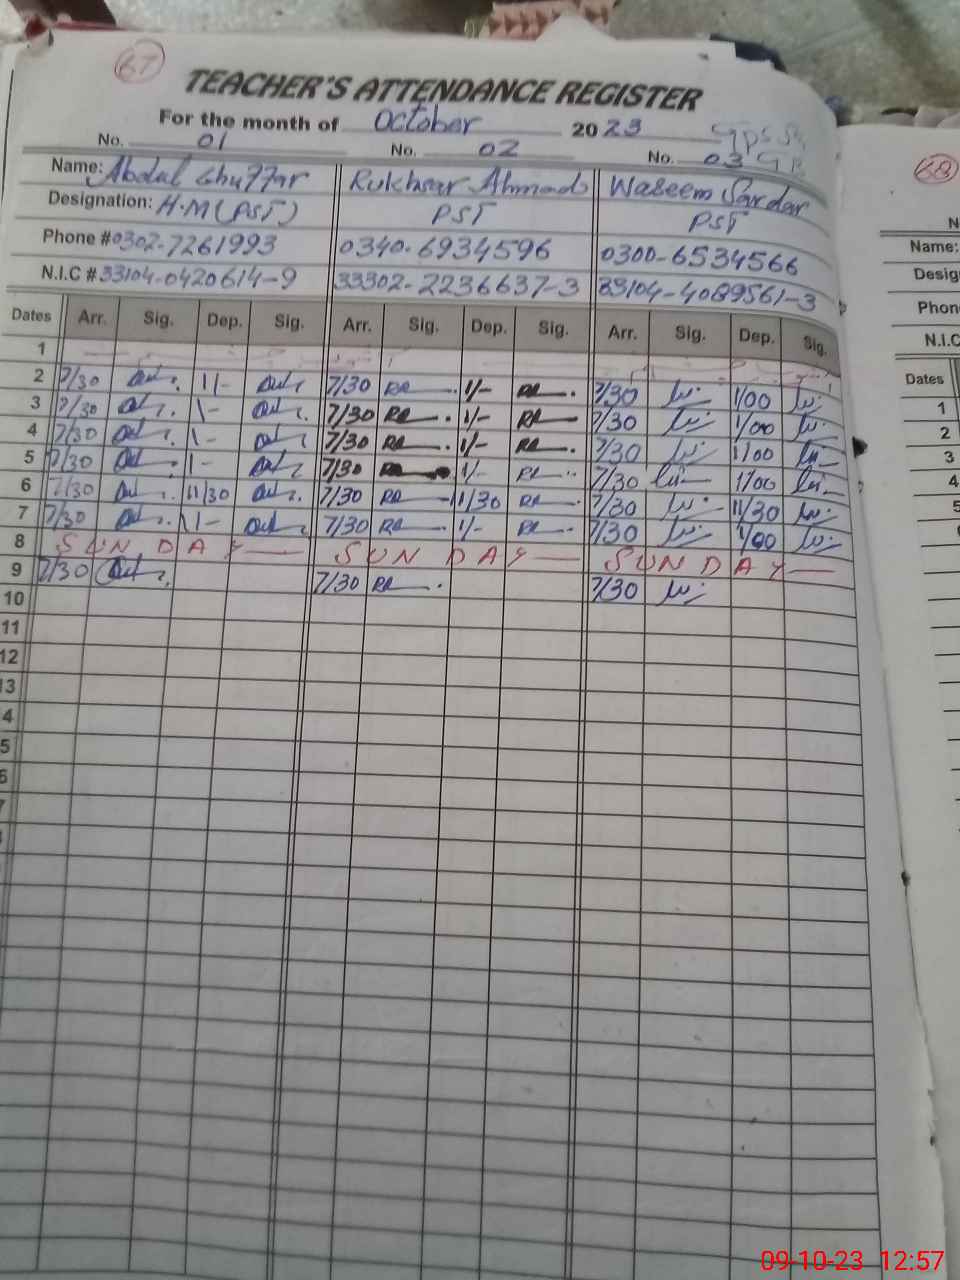 67
TEACHER'S ATTENDANCE REGISTER
For the month of October 2023
No. 01 No. 02 No. 03
Name: Abdul Ghuffar Rukhsar Ahmad Waseem Sardar
Designation: H.M (PST) PST PST
Phone # 0302-7261993 0340-6934596 0300-6534566
N.I.C # 33104-0420614-9 33302-2236637-3 33104-4089561-3
Dates Arr. Sig. Dep. Sig. Arr. Sig. Dep. Sig. Arr. Sig. Dep. Sig.
1
2 7/30 1/- 7/30 RA 1/- RA 7/30 1/00
3 7/30 1- 7/30 RA 1/- RA 7/30 1/00
4 7/30 1- 7/30 RA 1/- RA 7/30 1/00
5 7/30 1- 7/30 1/- RA 7/30 1/00
6 7/30 11/30 7/30 RA 11/30 RA 7/30 11/30
7 7/30 1- 7/30 RA 1/- RA 7/30 1/00
8 SUNDAY SUNDAY SUNDAY
9 7/30 7/30 RA 7/30
10
11
12
13
4
5
6
7
68
N
Name:
Desig
Phon
N.I.C
Dates
1
2
3
4
5
09-10-23 12:57